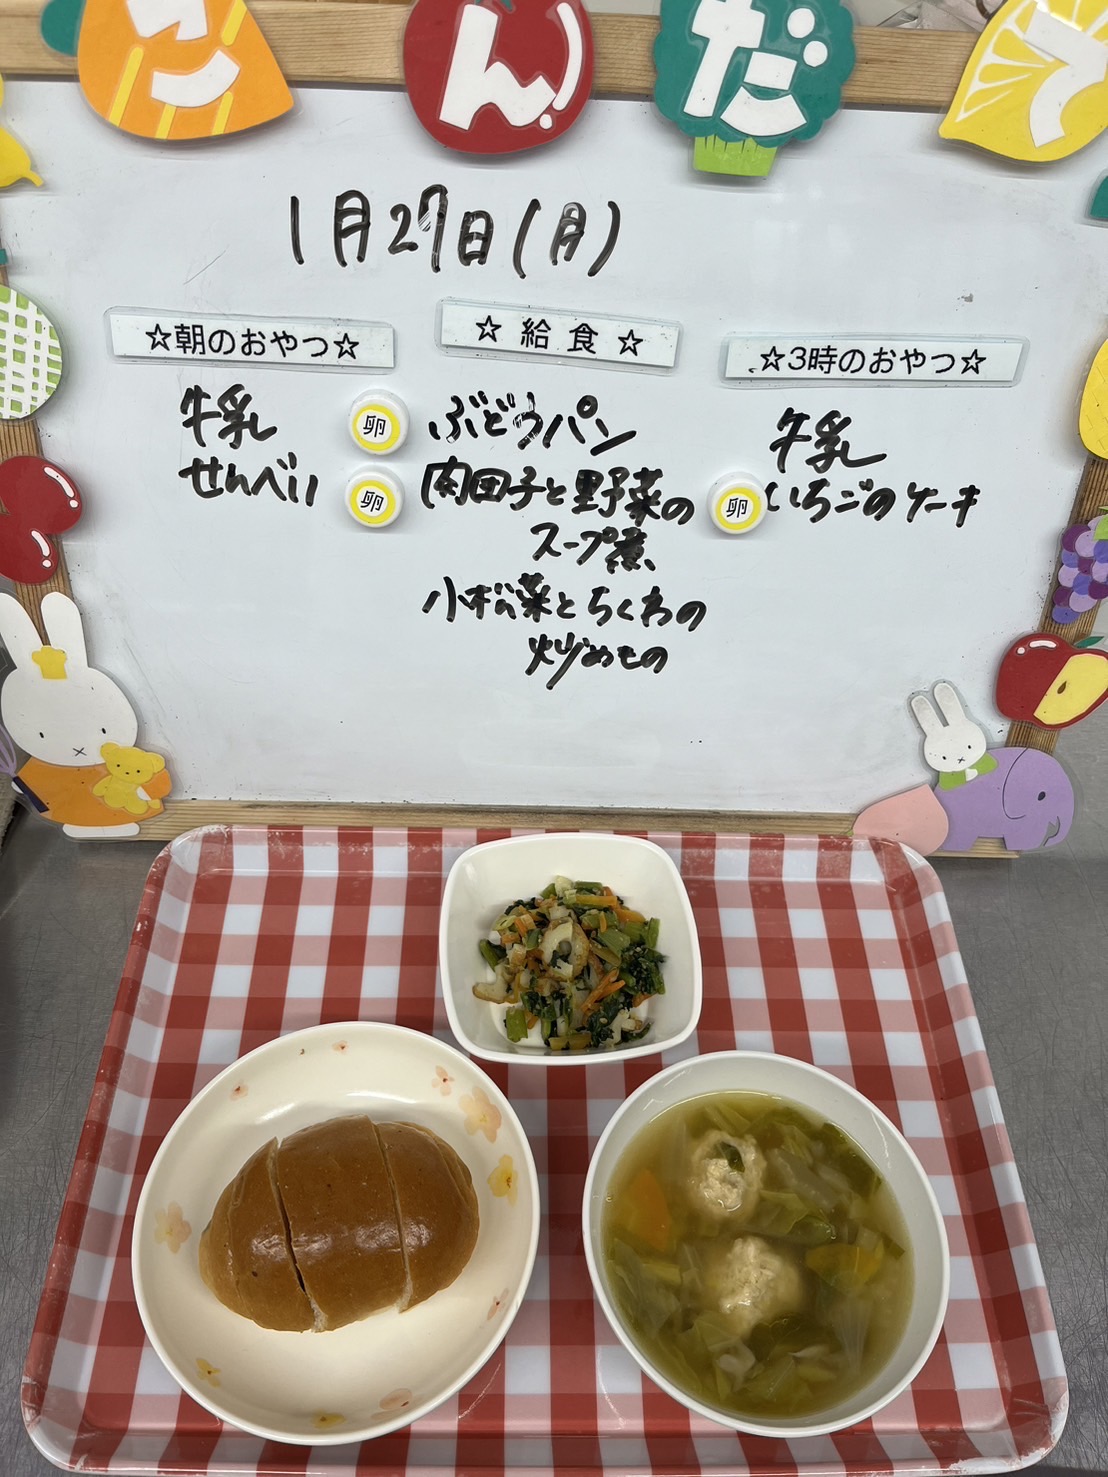 こんだて
1月27日(月)
☆朝のおやつ☆
牛乳
せんべい
☆ 給 食 ☆
卵 ぶどうパン
卵 肉団子と野菜の
スープ煮
小松菜とちくわの
炒めもの
☆3時のおやつ☆
牛乳
卵 いちごのケーキ